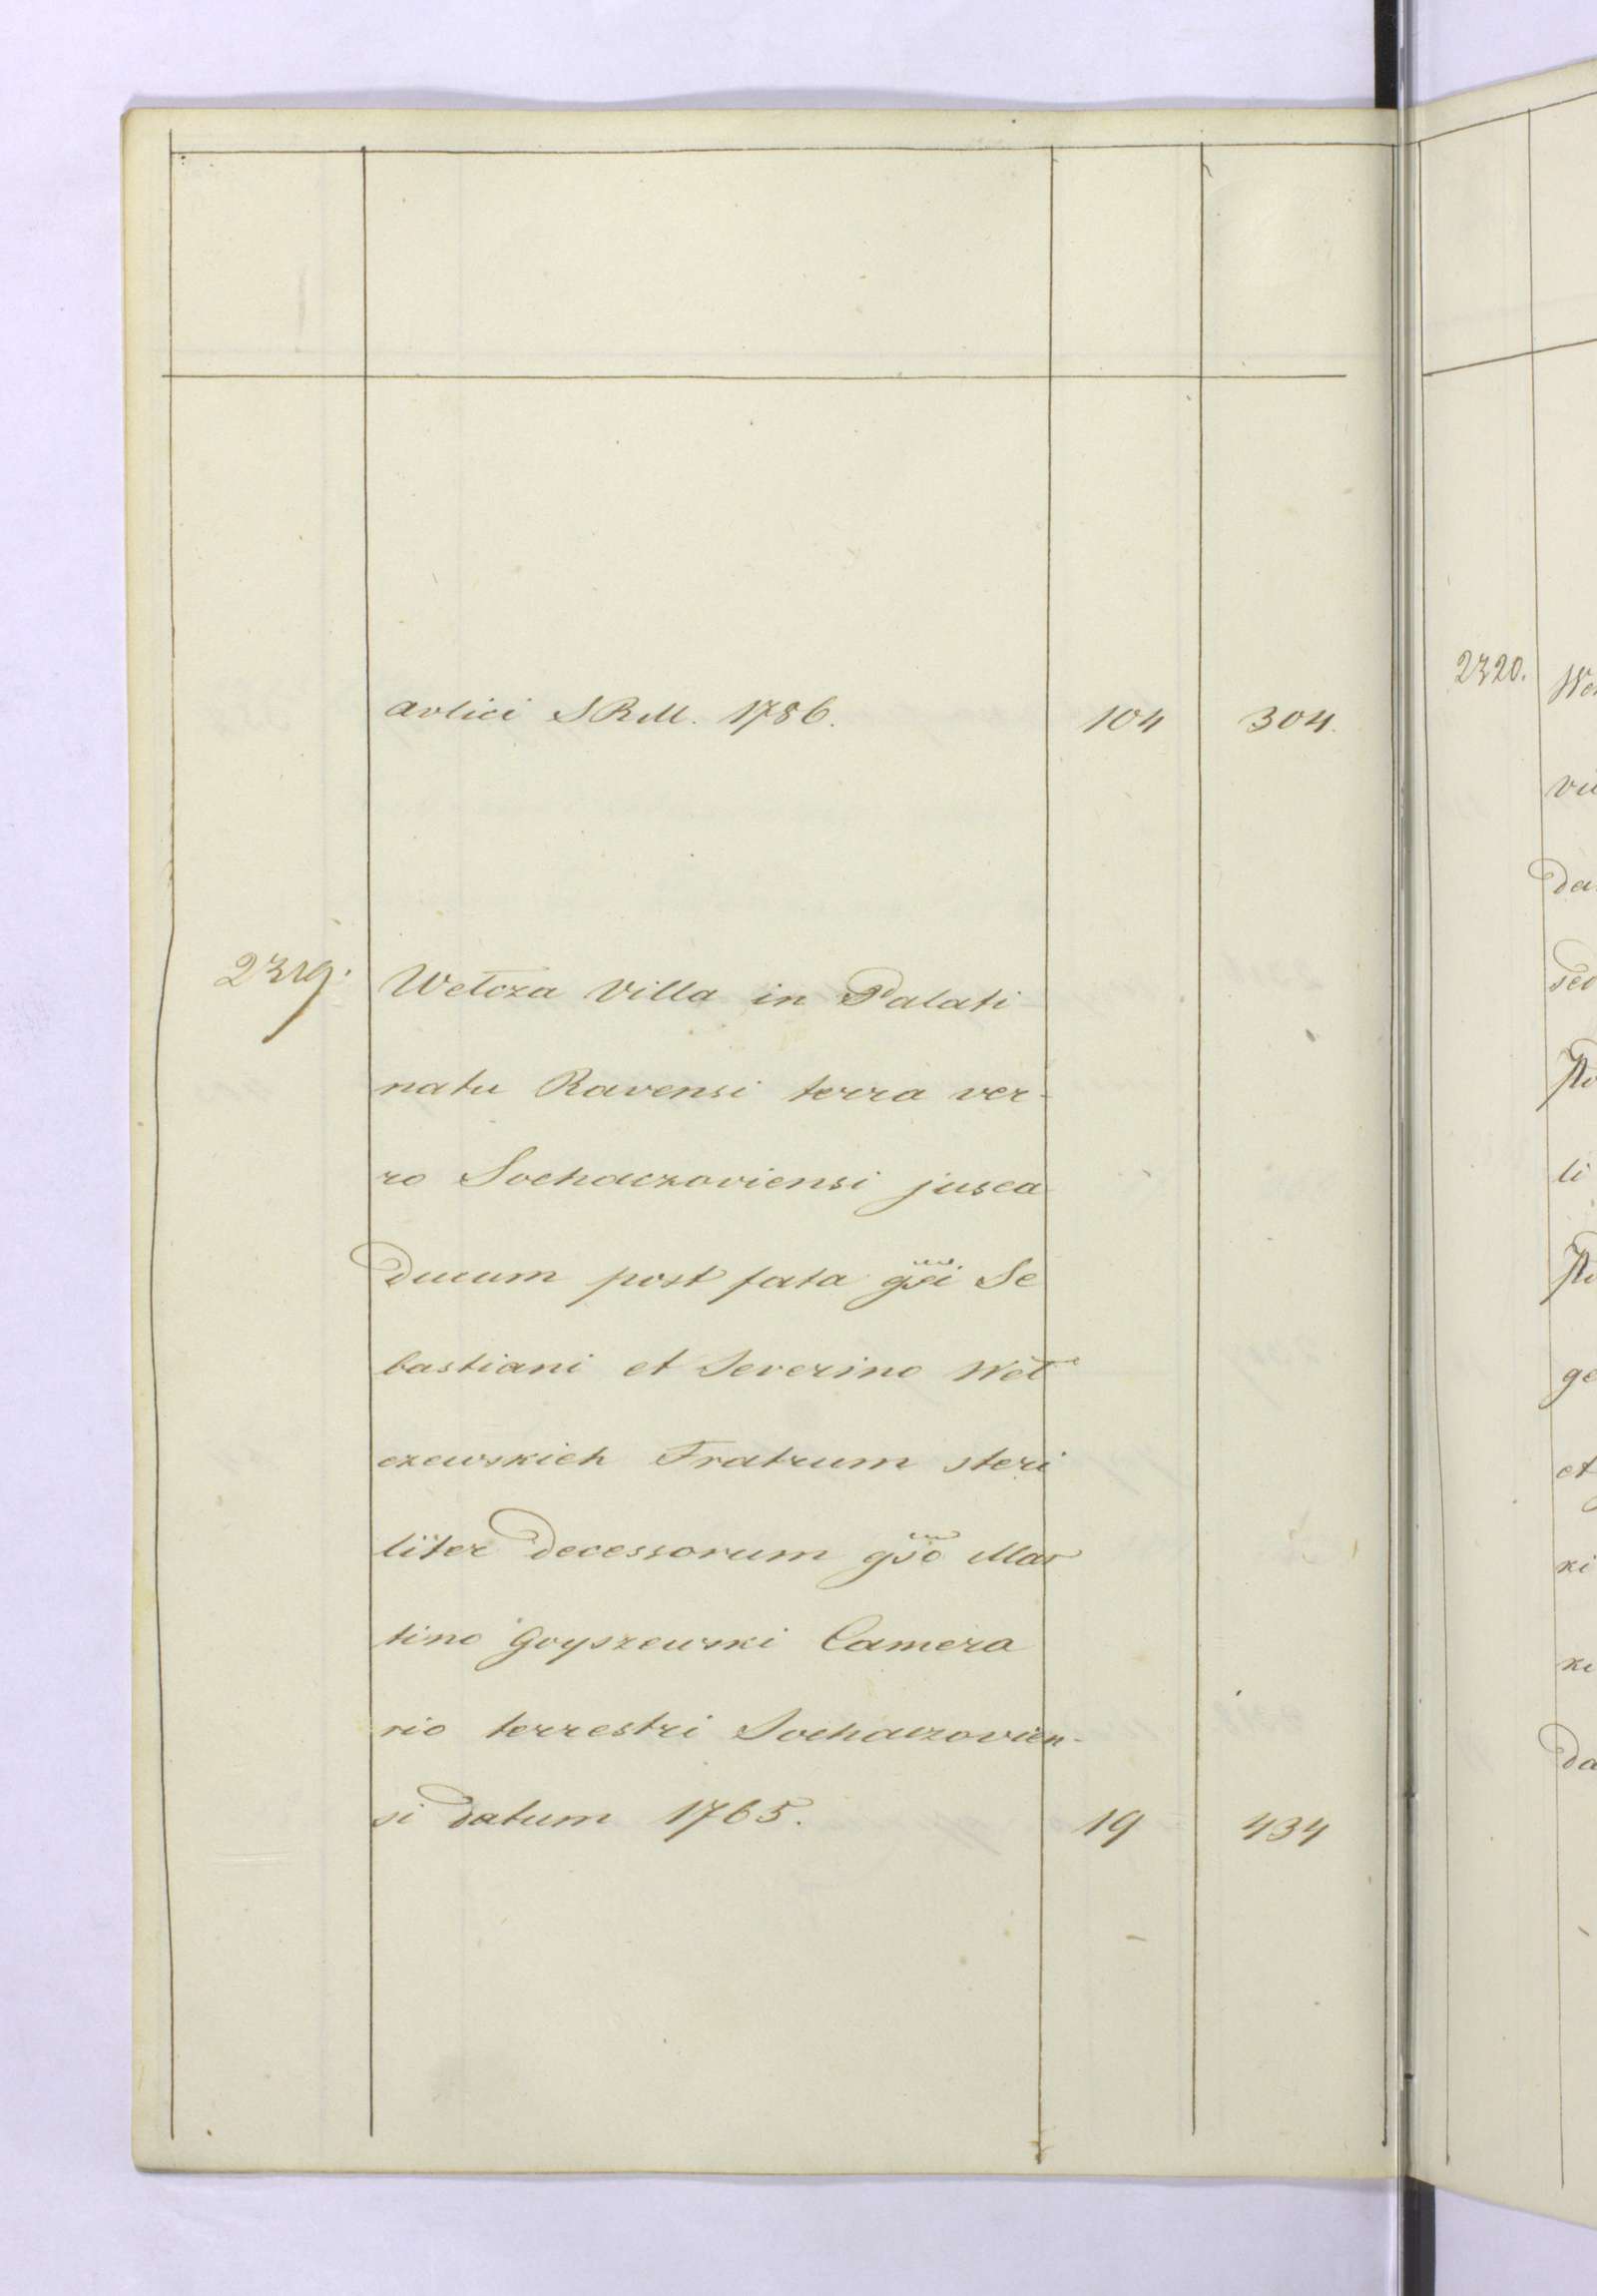 avlici SRM. 1786. 104 304.
2319. Wetcza Villa in Palati
natu Ravensi terra ver-
ro Sochaczoviensi jusca
ducum post fata gsi Se
bastiani et Severino Wet
czewskich Fratrum steri
liter decessorum gso Mar
tino Goyszewski Camera
rio terrestri Sochaczovien-
si datum 1765. 19 434
2320.
da
li
ge
et
ki
da